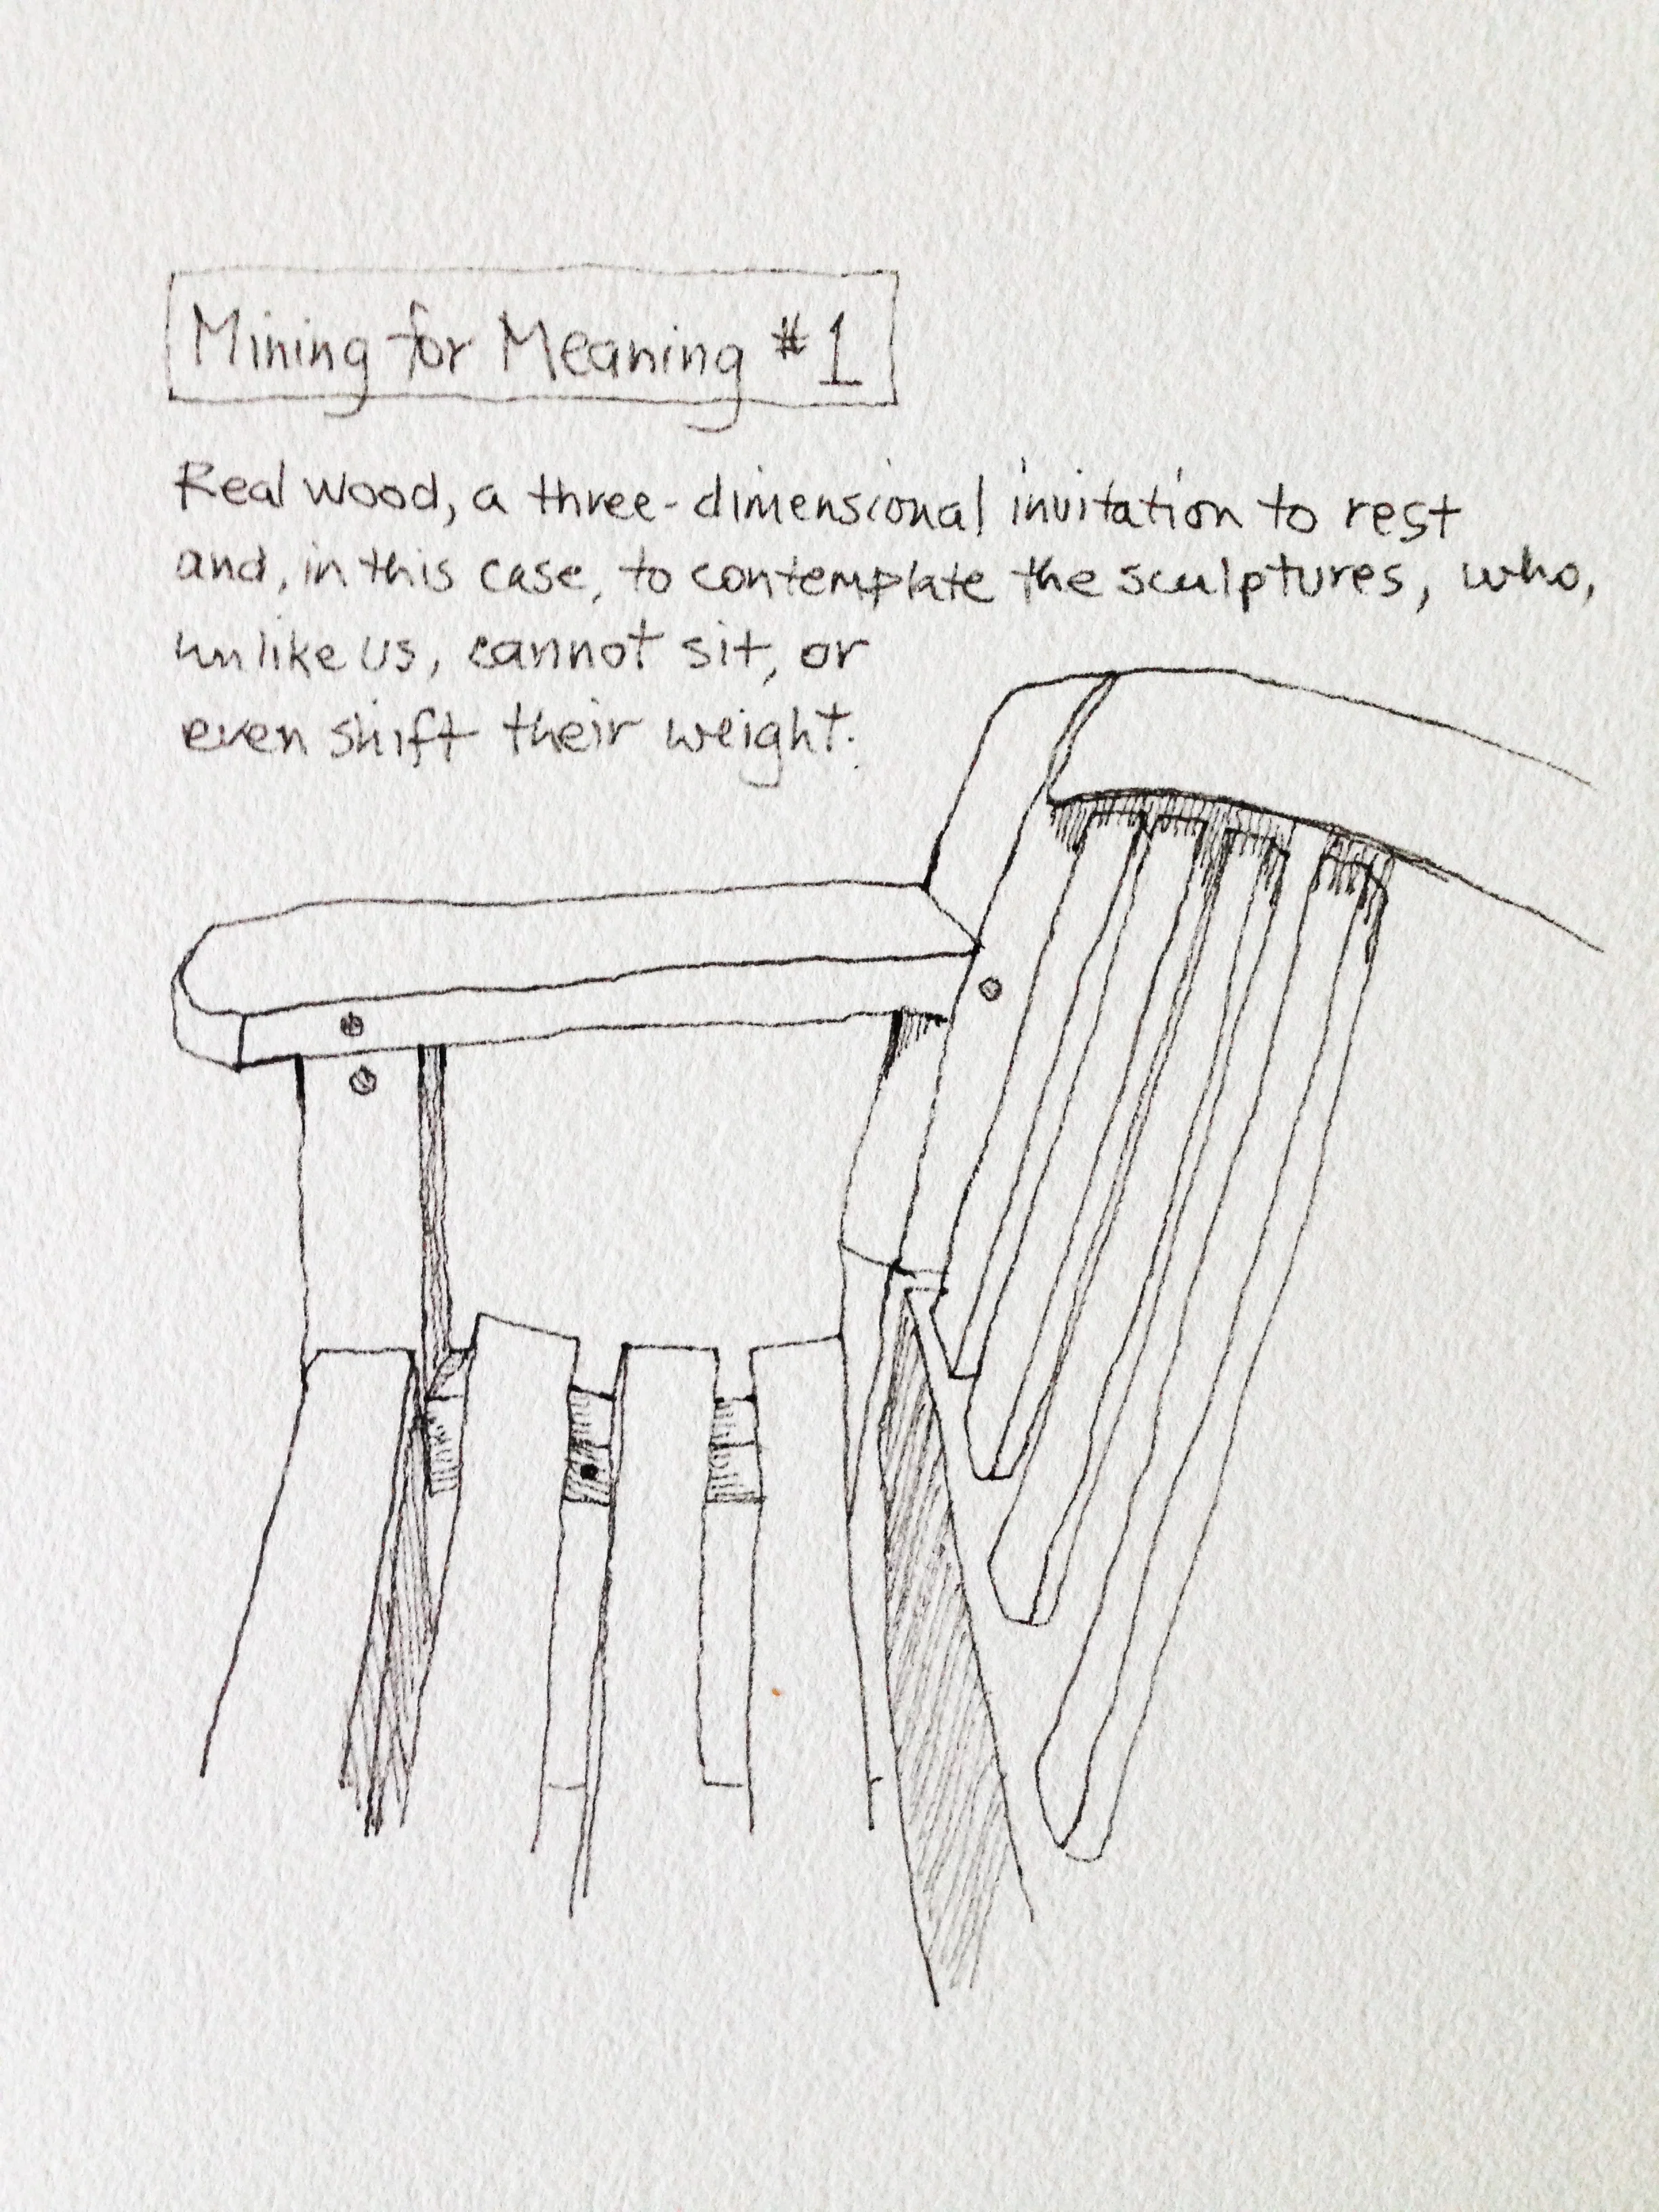 Mining for Meaning #1
Real wood, a three-dimensional invitation to rest
and, in this case, to contemplate the sculptures, who,
unlike us, cannot sit, or
even shift their weight.